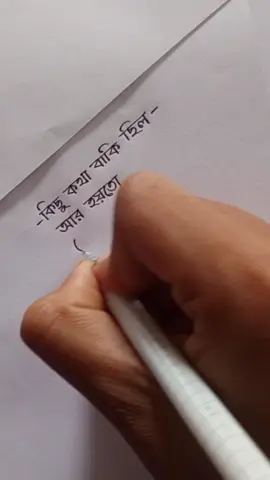 -কিছু কথা বাকি ছিল-
আর হয়তো